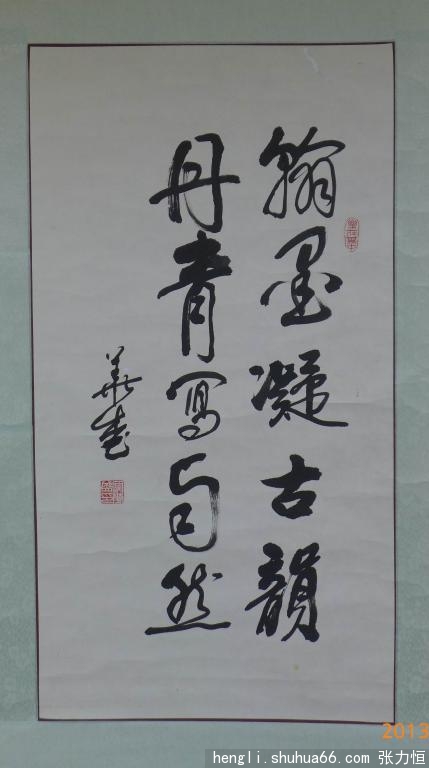 翰墨凝古韻
丹青寫自然
2013
hengli.shuhua66.com 张力恒